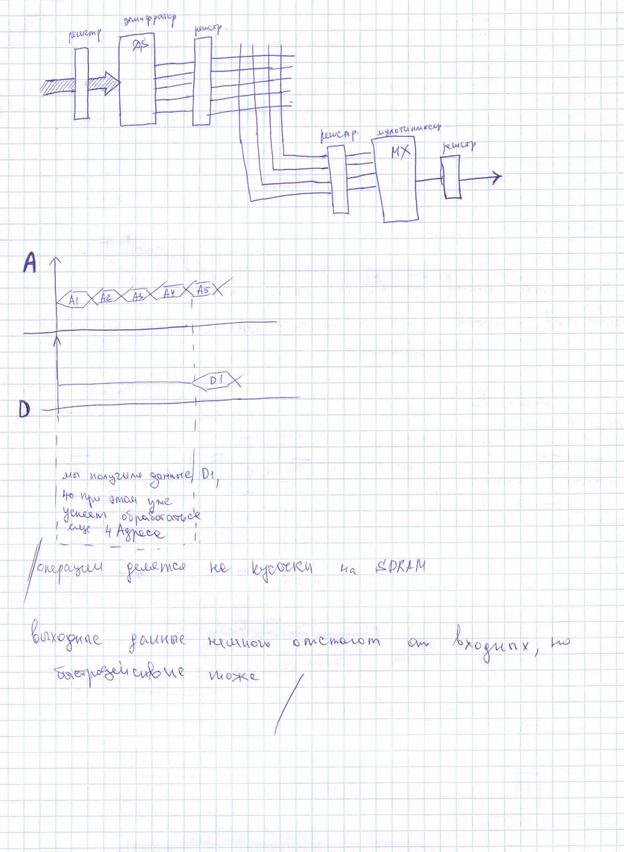 регистр
дешифратор
DS
регистр
регистр
мультиплексор
MX
регистр
A
A1 A2 A3 A4 A5
D1
D
мы получили данные D1,
но при этом уже
успеем обработаться
еще 4 Адреса
операции делятся не кусочки на SDRAM
выходные данные немного отстают от входных, но
быстродействие тоже